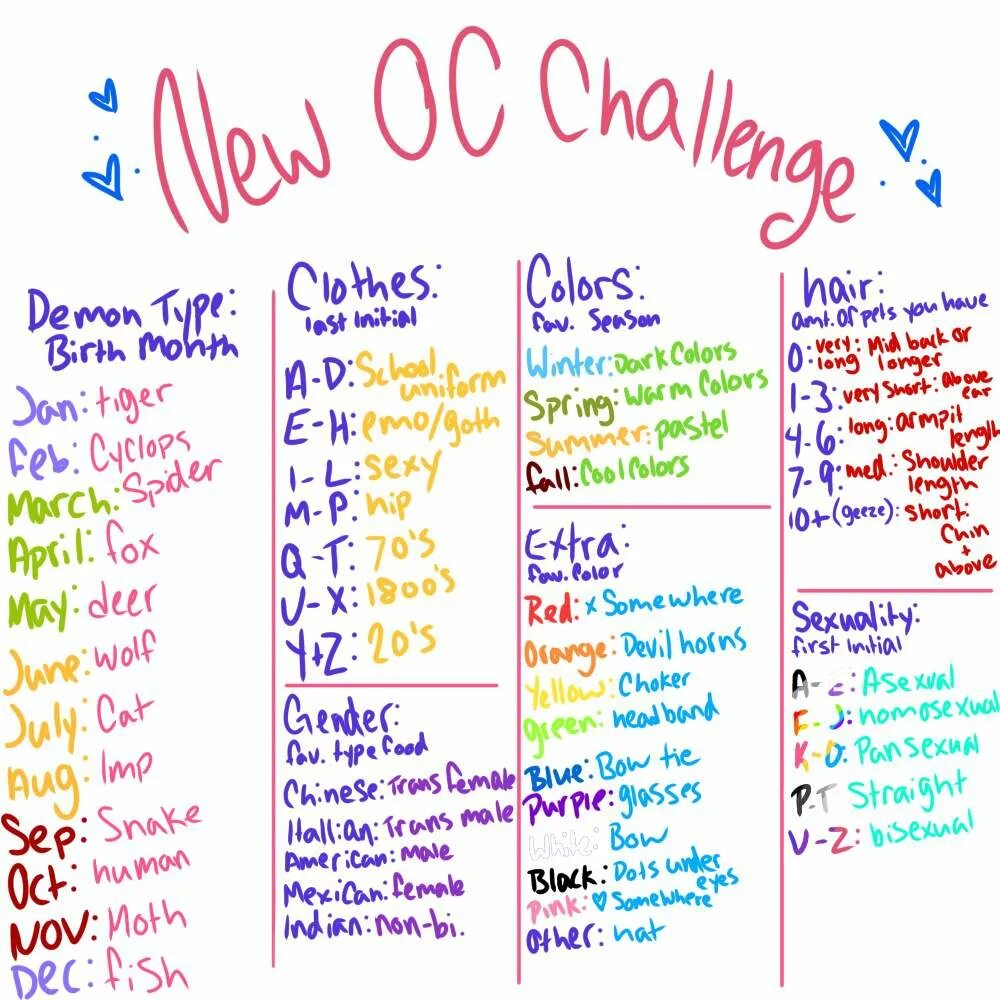 New OC Challenge
Demon Type:
Birth Month
Jan: tiger
Feb: Cyclops
March: Spider
April: fox
May: deer
June: wolf
July: Cat
Aug: Imp
Sep: Snake
Oct: human
Nov: Moth
Dec: fish
Clothes:
last initial
A-D: School uniform
E-H: emo/goth
I-L: sexy
M-P: hip
Q-T: 70's
U-X: 1800's
Y+Z: 20's
Gender:
fav. type food
Chinese: Trans female
Itallian: Trans male
American: male
Mexican: female
Indian: non-bi.
Colors:
fav. Season
Winter: Dark Colors
Spring: Warm Colors
Summer: pastel
fall: Cool Colors
Extra:
fav. Color
Red: x Somewhere
Orange: Devil horns
Yellow: Choker
green: headband
Blue: Bow tie
Purple: glasses
White: Bow
Black: Dots under eyes
Pink: ♡ Somewhere
Other: hat
hair:
amt. of pets you have
0: very long: Mid back or longer
1-3: very Short: above ear
4-6: long: armpit length
7-9: med.: Shoulder length
10+ (geeze): short: Chin + above
Sexuality:
first initial
A-E: Asexual
E-J: homosexual
K-O: Pansexual
P-T Straight
U-Z: bisexual